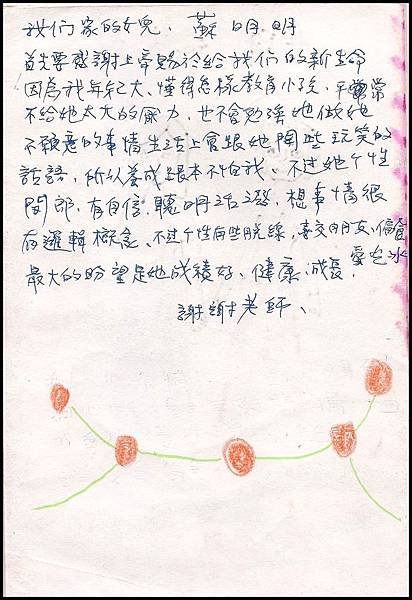 我们家的女兒、蘇明明
首先要感謝上帝賜於給我们的新生命
因為我年紀大、懂得怎樣教育小孩，平常
不給她太大的壓力，也不會勉強她做她
不願意的事情生活上會跟她開些玩笑的
話語，所以養成跟本不怕我、不过她个性
開郎，有自信，聰明活潑，想事情很
有邏輯概念、不过个性有些脱線，喜交朋友、
愛吃冰
最大的盼望是她成績好、健康、成長，
謝謝老師、